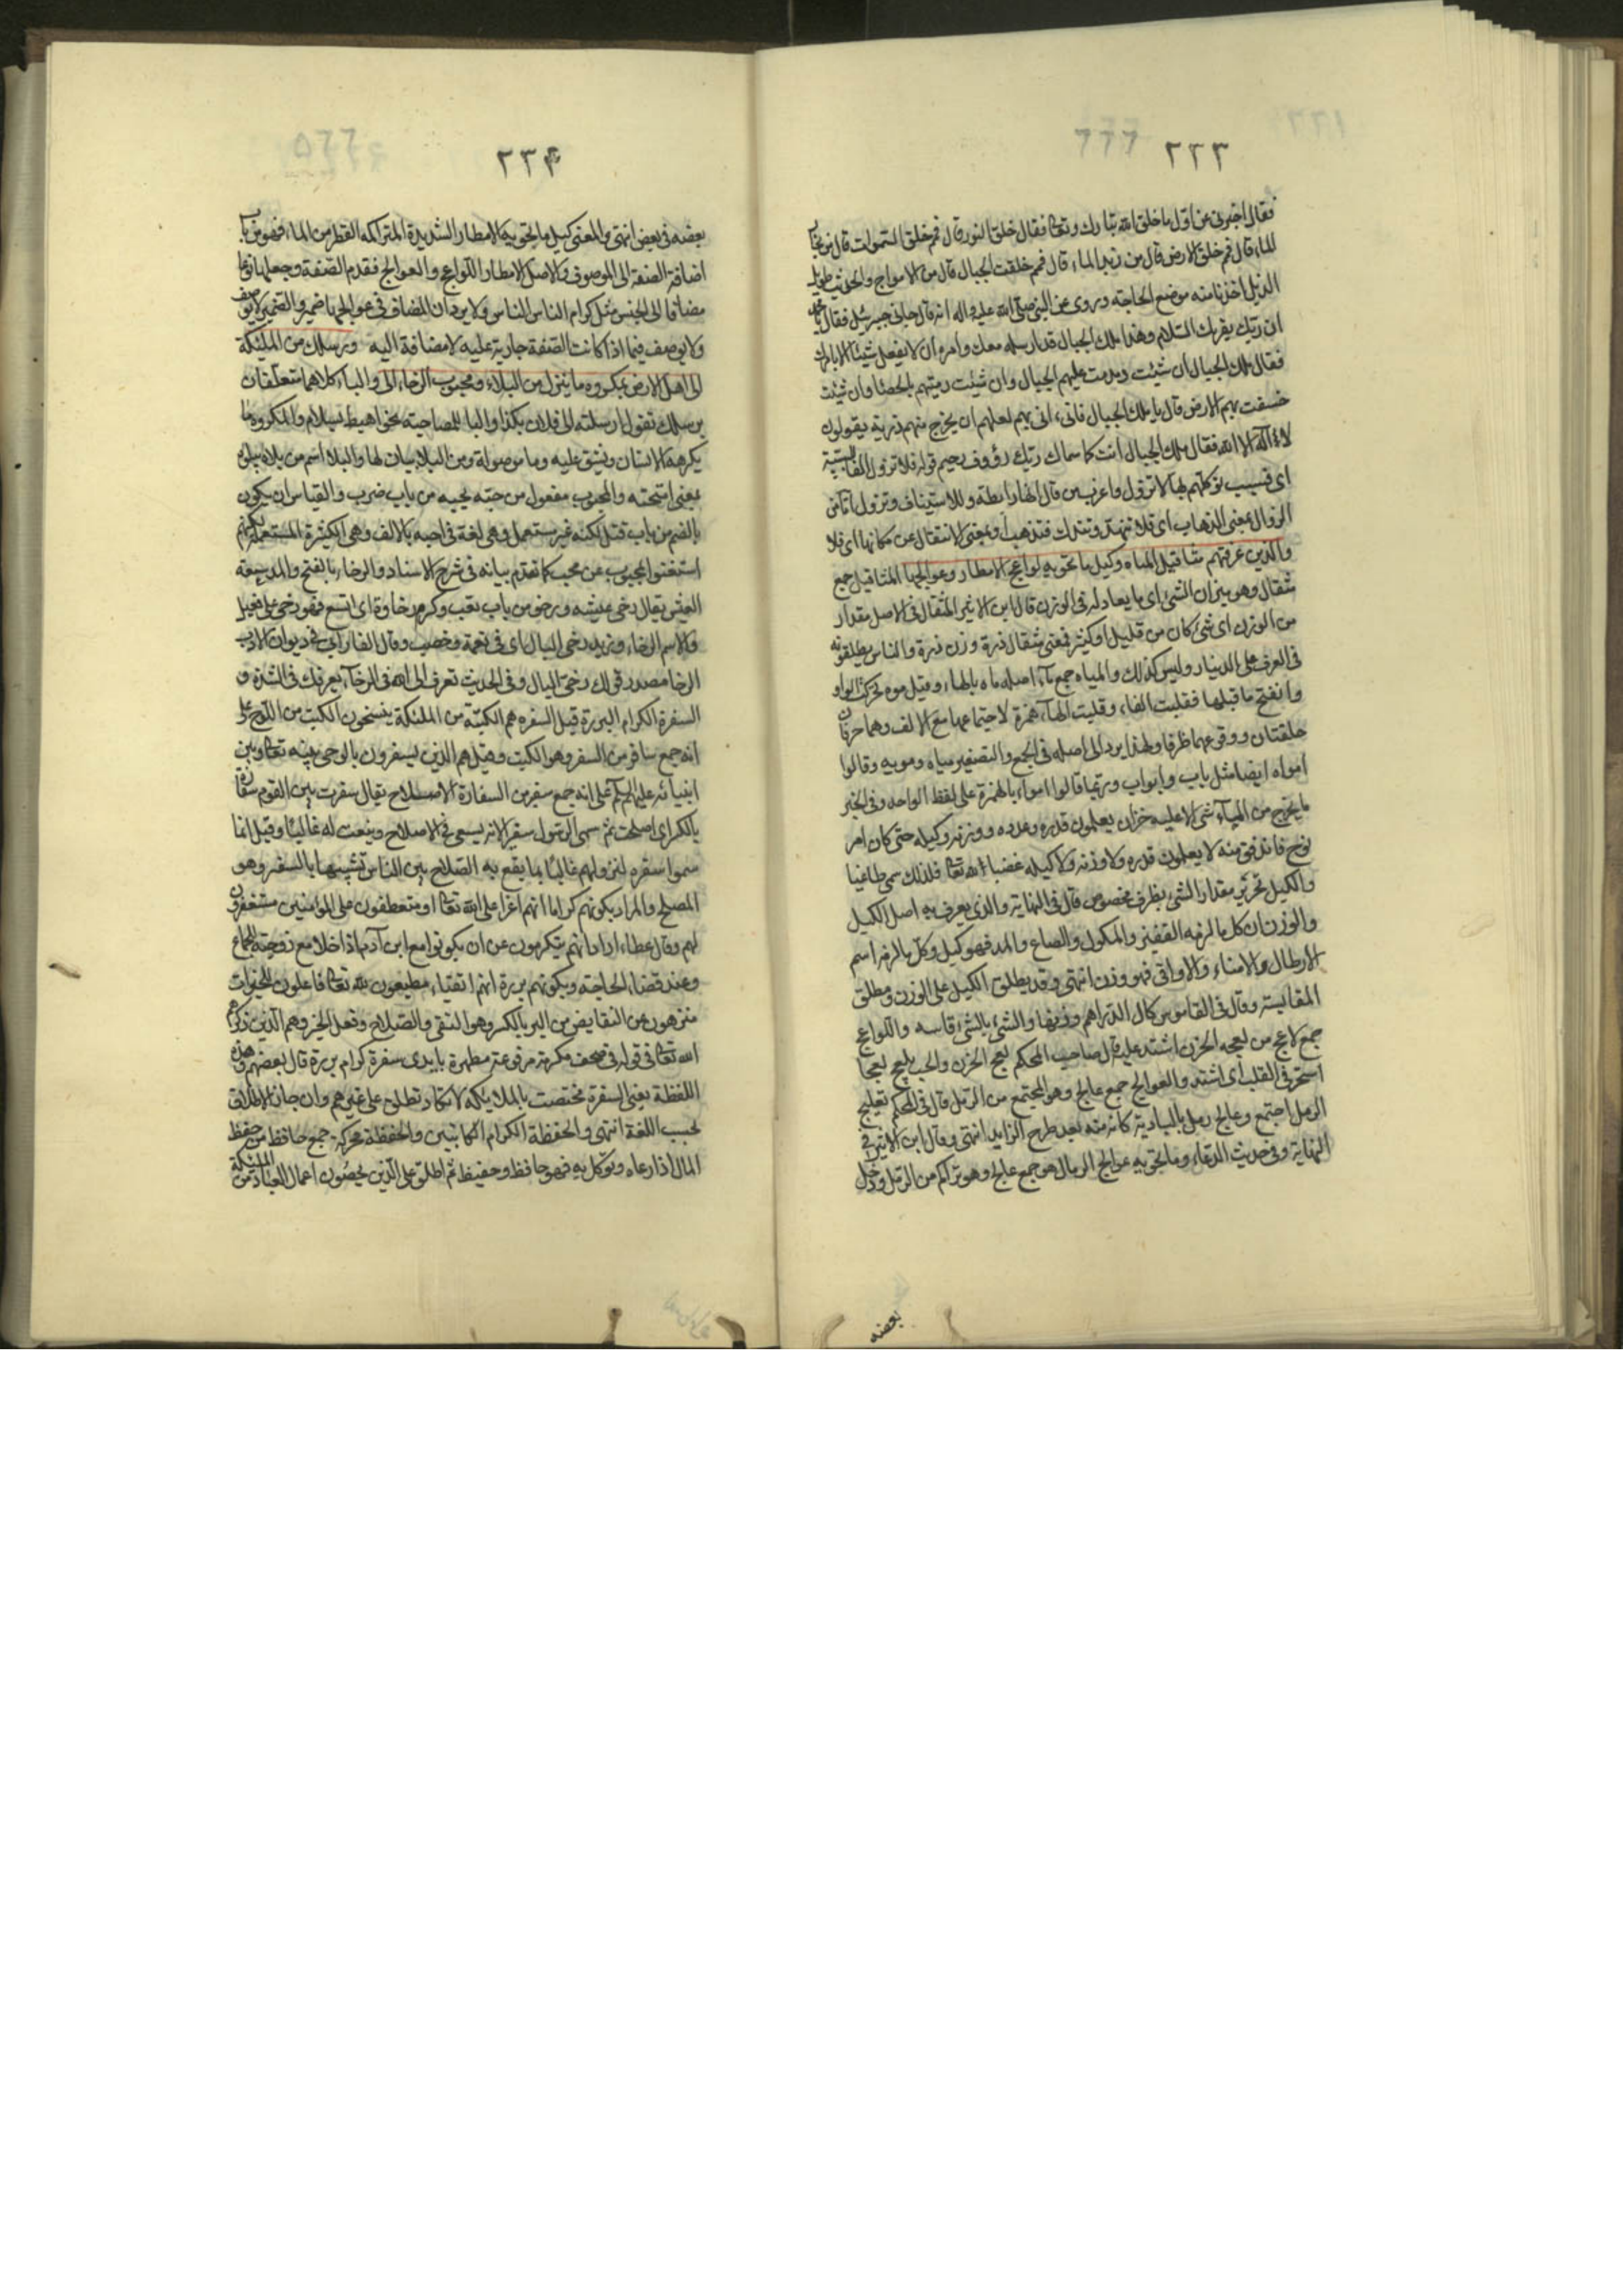 ٢٣٣
فقال اخبرنى عن اول ما خلق الله تبارك وتعا فقال خلق النور قال فمم خلق السموات قال من بخار
الماء قال فمم خلق الارض قال من زبد الماء قال فمم خلقت الجبال قال من الامواج والحديث طويل
الذيل اخذنا منه موضع الحاجته وروى عن النبى صلى الله عليه واله انه قال جاءنى جبرئيل فقال يا محمد
ان ربك يقرئك السلام وهذا ملك الجبال قد ارسله معك وامره ان لا يفعل شيئا الا بامرك
فقال ملك الجبال ان شئت دمدمت عليهم الجبال وان شئت رميتهم بالحصا وان شئت
خسفت بهم الارض قال يا ملك الجبال فانى انى بهم لعلهم ان يخرج منهم ذرية يقولون
لا اله الا الله فقال ملك الجبال انت كما سماك ربك رؤوف رحيم قوله فلا تزول الفا لسببية
اى فبسبب توكلهم بها لا تزول واعرب من قال انها رابطة وللاستيناف وتزول اما من
الزوال بمعنى الذهاب اى فلا تنهد وتندك فتذهب او بمعنى الانتقال عن مكانها اى فلا
والذين عرفتهم مثاقيل المياه وكيل ما تحويه لواعج الامطار وعوالجها المثاقيل جمع
مثقال وهو ميزان الشئ اى ما يعادله فى الوزن قال ابن الاثير المثقال فى الاصل مقدار
من الوزن اى شئ كان من قليل او كثير فمعنى مثقال ذرة وزن ذرة والناس يطلقونه
فى العرف على الدينار وليس كذلك والمياه جمع ماء اصله ماه بالهاء وقيل موه تحركت الواو
وانفتح ما قبلها فقلبت الفاء وقلبت الهاء همزة لاجتماعها مع الالف وهما حرفان
حلقتان ووقوعهما طرفا ولهذا يرد الى اصله فى الجمع والتصغير مياه ومويه وقالوا
امواه ايضا مثل باب وابواب وربما قالوا امواء بالهمزة على لفظ الواحد وفى الخبر
ما يخرج من الماء شئ الا عليه خزان يعلمون قدره وعدده ووزنه وكيله حتى كان امر
نوح فاندفق منه لا يعلمون قدره ولا وزنه ولا كيله غضبا لله تعا فلذلك سمى طاغيا
والكيل تحرير مقدار الشئ بظرف مخصوص قال فى النهاية والذى يعرف به اصل الكيل
والوزن ان كل ما لزمه القفيز والمكوك والصاع والمد فهو كيل وكل ما لزمه اسم
الارطال والامناء والاواقى فهو وزن انتهى وقد يطلق الكيل على الوزن ومطلق
المقايسة وقال فى القاموس كال الدراهم وزنها والشئ بالشئ قاسه واللواعج
جمع لاعج من لعجه الحزن اشتد عليه قال صاحب المحكم لعج الحزن والحب يلعج لعجا
استحر فى القلب اى اشتد والعوالج جمع عالج وهو المجتمع من الرمل قال فى المحكم تعليج
الرمل اجتمع وعالج رمل بالبادية كانه منه بعد طرح الزايد انتهى وقال ابن الاثير فى
النهاية وفى حديث الدعاء وما تحويه عوالج الرمال هو جمع عالج وهو تراكم من الرمل ودخل
بعضه
٢٣۴
بعضه فى بعض انتهى والمعنى كيل ما تحويه الامطار الشديدة المتراكمه القطر من الماء فهو من باب
اضافة الصفة الى الموصوف والاصل الامطار اللواعج والعوالج فقدم الصفة وجعلها نوعا
مضافا الى الجنس مثل كرام الناس للناس ولا يرد ان المضاف فى عوالجها ضمير والضمير لا يوصف
ولا يوصف فيما اذا كانت الصفة جارية عليه لا مضافة اليه ورسلك من الملئكة
الى اهل الارض بمكروه ما ينزل من البلاء ومحبوب الرخاء الى والباء كلاهما متعلقان
برسلك تقول ارسلته الى فلان بكذا والباء للمصاحبة نحو اهبط بسلام والمكروه ما
يكرهه الانسان ويشق عليه وما موصولة ومن البلا بيان لها والبلا اسم من بلاه يبلوه
بمعنى امتحنه والمحبوب مفعول من حبه يحبه من باب ضرب والقياس ان يكون
بالضم من باب قتل لكنه غير مستعمل وهى لغة فى احبه بالالف وهى الكثيرة المستعملة لكنهم
استغنوا بمحبوب عن محب كما تقدم بيانه فى شرح الاسناد والرخاء بالفتح والمد سعة
العيش يقال رخى عيشه ورخو من باب تعب وكرم رخاوة اى اتسع فهو رخى على فعيل
والاسم الرخاء وزيد رخى البال اى فى نعمة وخصب وقال الفارابى فى ديوان الادب
الرخا مصدر قولك رخى البال وفى الحديث تعرف الى الله فى الرخاء يعرفك فى الشدة و
السفرة الكرام البررة قيل السفره هم الكتبة من الملئكة ينسخون الكتب من اللوح على
انه جمع سافر من السفر وهو الكتب وقيل هم الذين يسفرون بالوحى بينه تعا وبين
انبيائه عليهم السلم على انه جمع سفير من السفارة الاصلاح يقال سفرت بين القوم سفارة
بالكسر اى اصلحت ثم سمى الرسول سفيرا لانه يسعى فى الاصلاح ويبعث له غالبا وقيل انما
سموا سفره لنزولهم غالبا بما يقع به الصلاح بين الناس تشبيها بالسفير وهو
المصلح والمراد بكونهم كراما انهم اعزا على الله تعا او متعطفون على المؤمنين مستغفرون
لهم وقال عطاء اراد انهم يتكرمون عن ان يكونوا مع ابن آدم اذا خلا مع زوجته للجماع
وعند قضاء الحاجته وبكونهم بررة انهم اتقياء مطيعون لله تعا فاعلون للخيرات
منزهون عن النقايض من البر بالكسر وهو التقى والصلاح وفعل الخير وهم الذين ذكرهم
الله تعا فى قوله فى صحف مكرمة مرفوعة مطهرة بايدى سفرة كرام بررة قال بعضهم وهذه
اللفظة يعنى السفرة مختصت بالملايكه لا تكاد تطلق على غيرهم وان جاز الاطلاق
بحسب اللغة انتهى والحفظة الكرام الكاتبين والحفظة محركة جمع حافظ من حفظ
المال اذا رعاه وتوكل به فهو حافظ وحفيظ ثم اطلق على الذين يحصون اعمال العباد من الملئكة